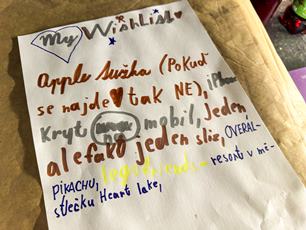 My WishList
Apple Sužka (Pokuď
se najde tak NE), iPhone
Kryt na mobil, jeden
alefakt jeden sliz, OVERÁL-
PIKACHU, lego friends - resort v mě-
stečku Heart lake,